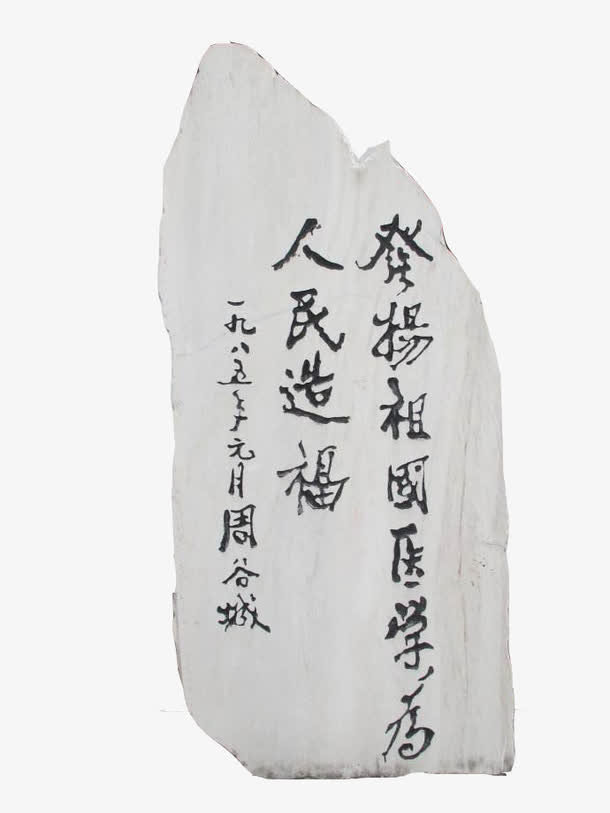 發揚祖國医学為
人民造福
一九八五年元月周谷城